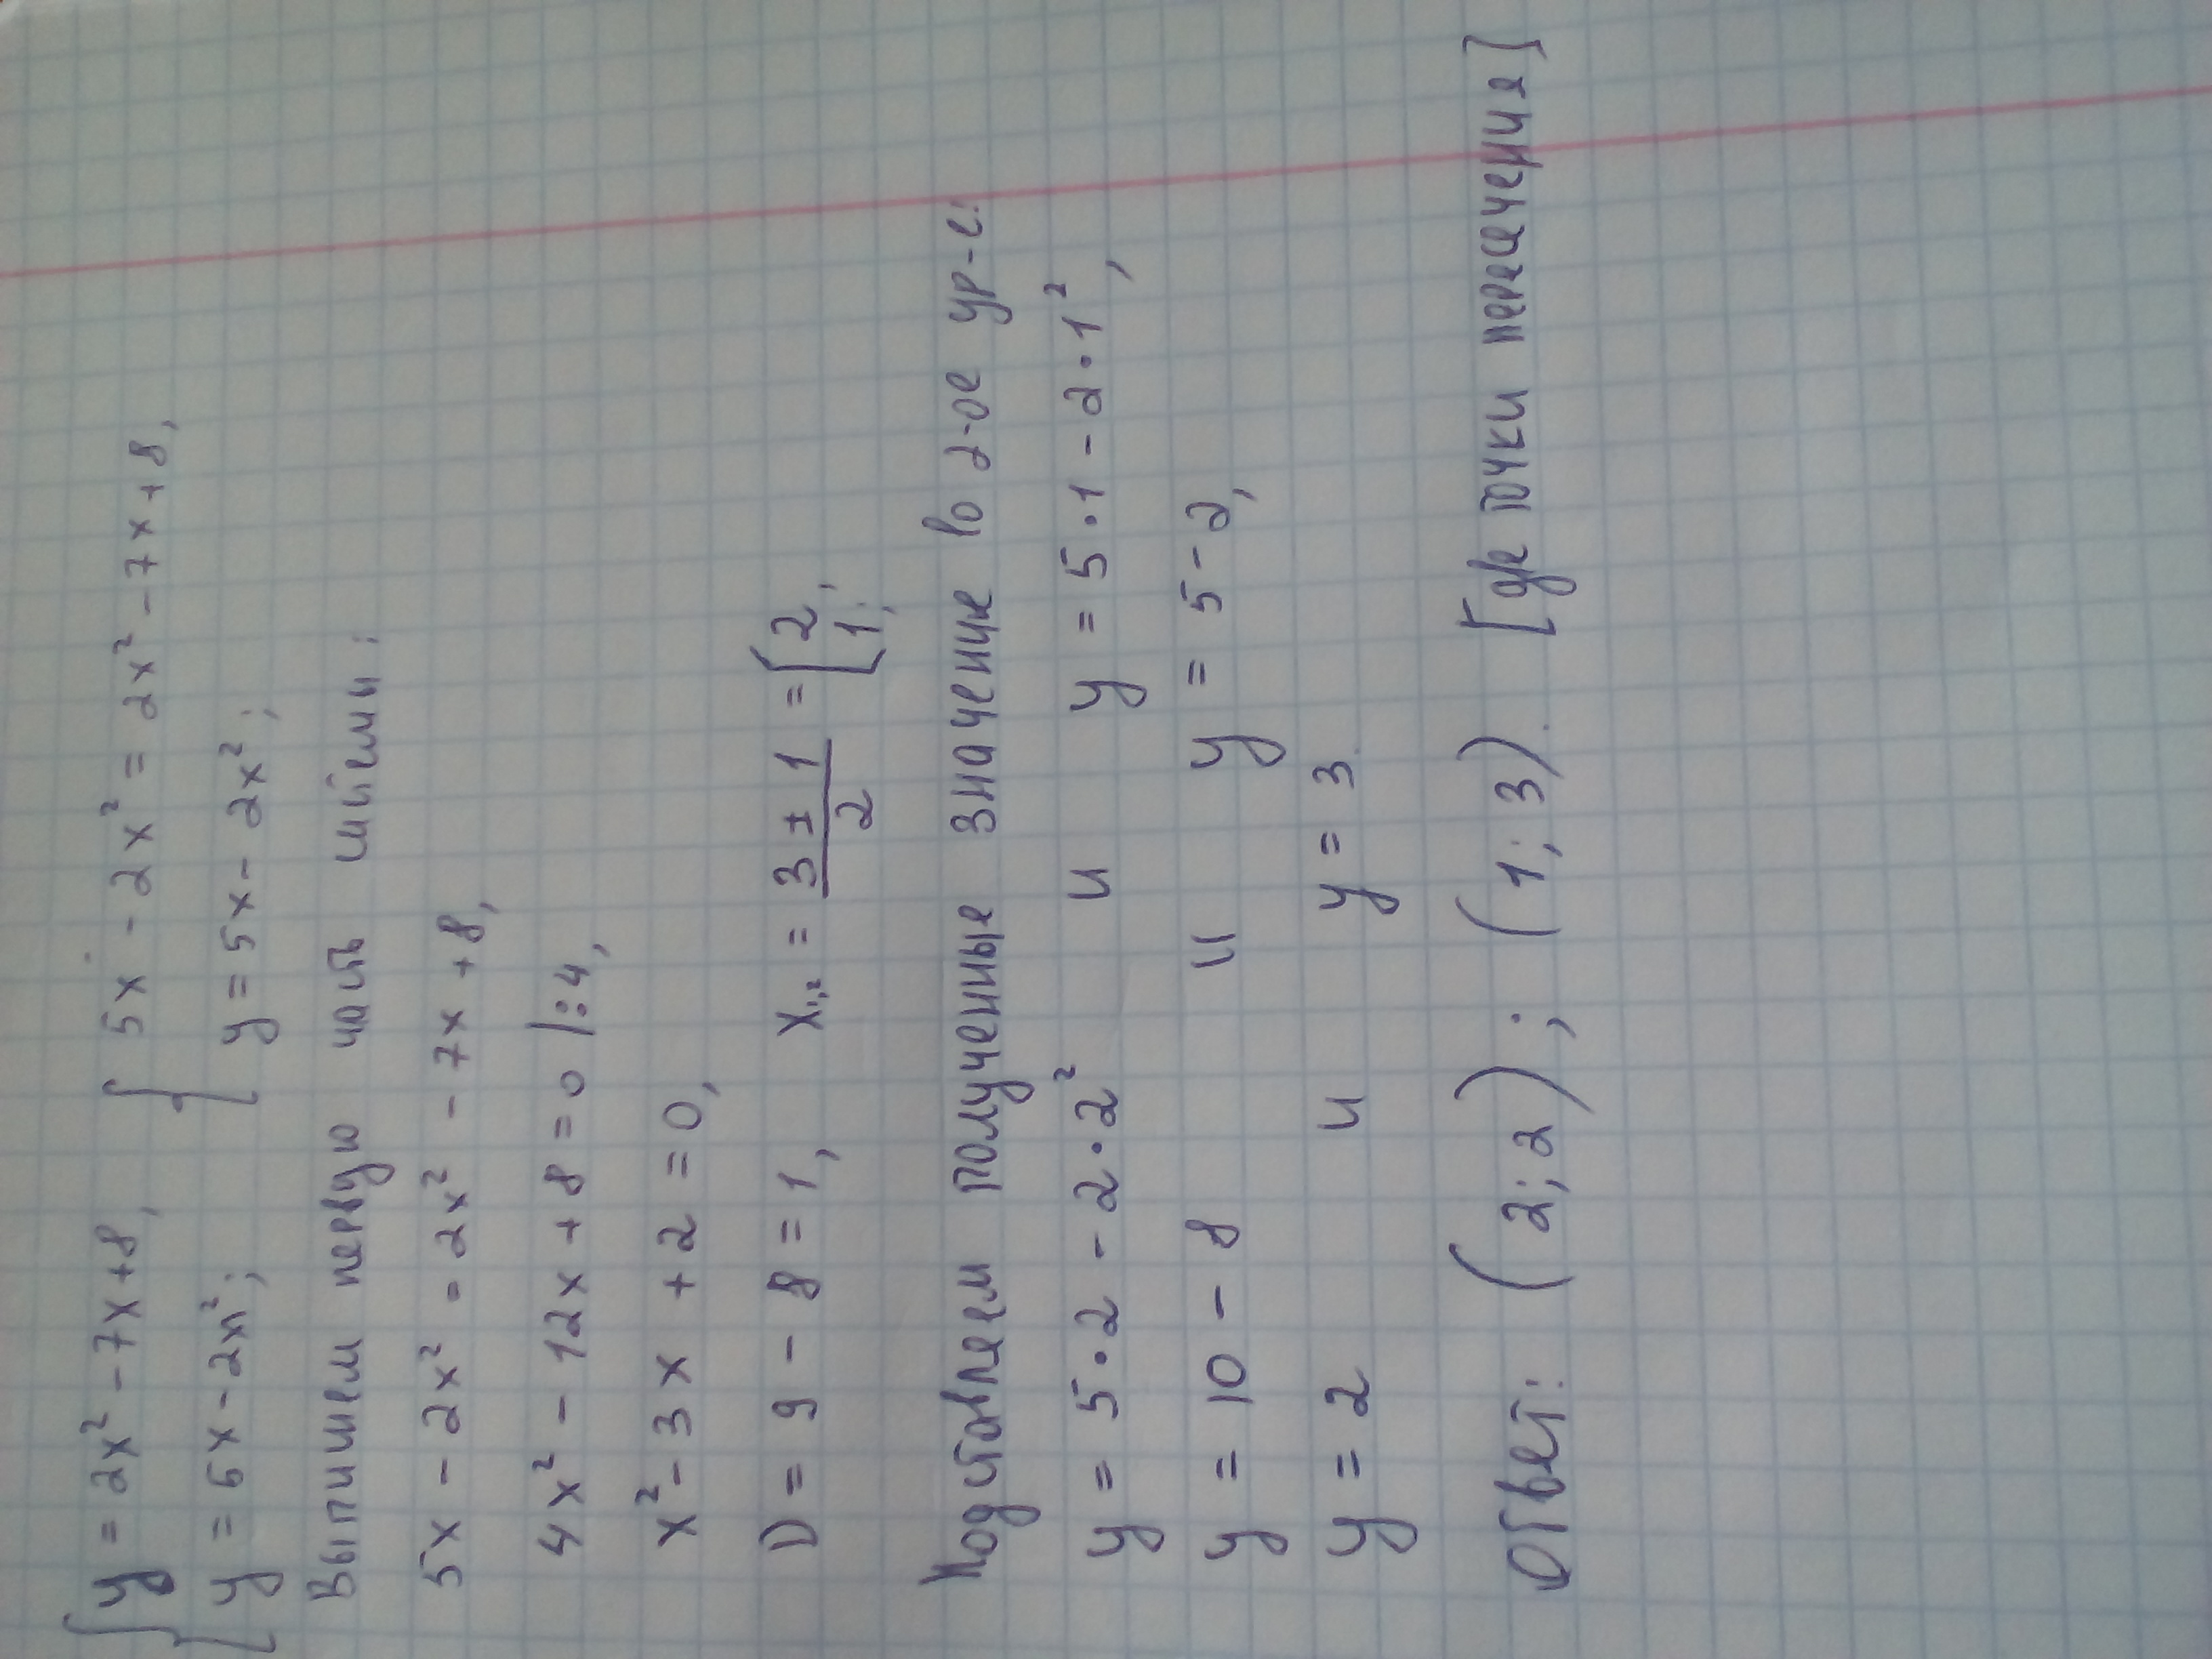 { y = 2x² - 7x + 8, { 5x - 2x² = 2x² - 7x + 8,
y = 5x - 2x²; y = 5x - 2x²;
Выпишем первую часть системы:
5x - 2x² = 2x² - 7x + 8,
4x² - 12x + 8 = 0 |:4,
x² - 3x + 2 = 0,
D = 9 - 8 = 1, x₁,₂ = (3 ± 1)/2 = [ 2, 1;
Подставляем полученные значение во 2-ое ур-е:
y = 5·2 - 2·2² и y = 5·1 - 2·1²,
y = 10 - 8 и y = 5 - 2,
y = 2 и y = 3.
Ответ: (2; 2); (1; 3). [где точки пересечения]